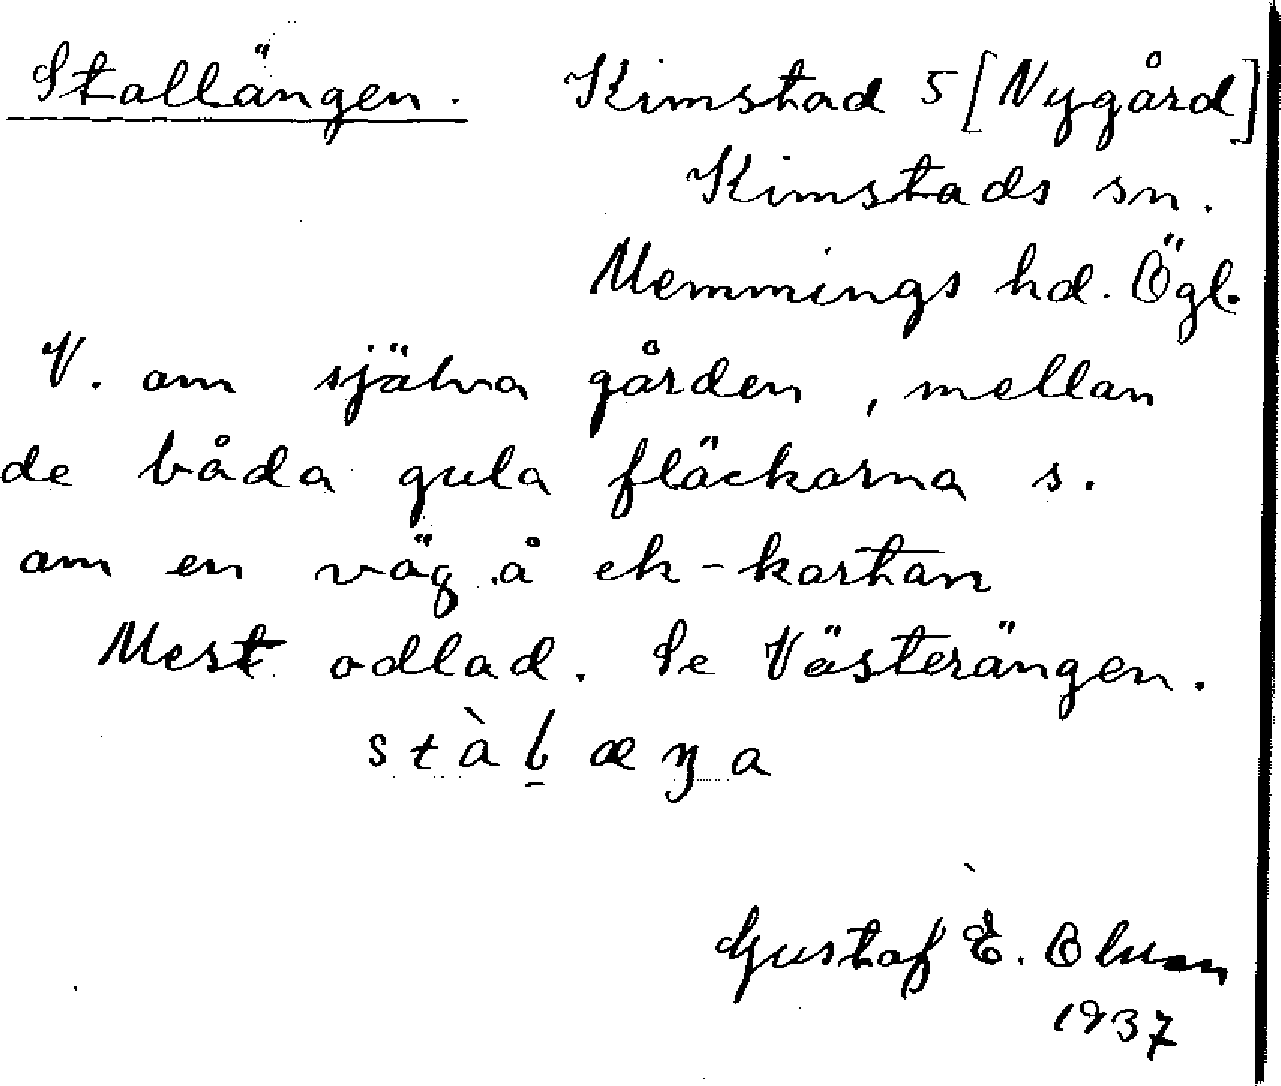 Stallängen. Kimstad 5 [Nygård]
Kimstads sn.
Memmings hd. Ögl.
V. om själva gården, mellan
de båda gula fläckarna s.
om en väg å ek-kartan
Mest odlad. Se Västerängen.
stàlæŋa
Gustaf E. Olsson
1937